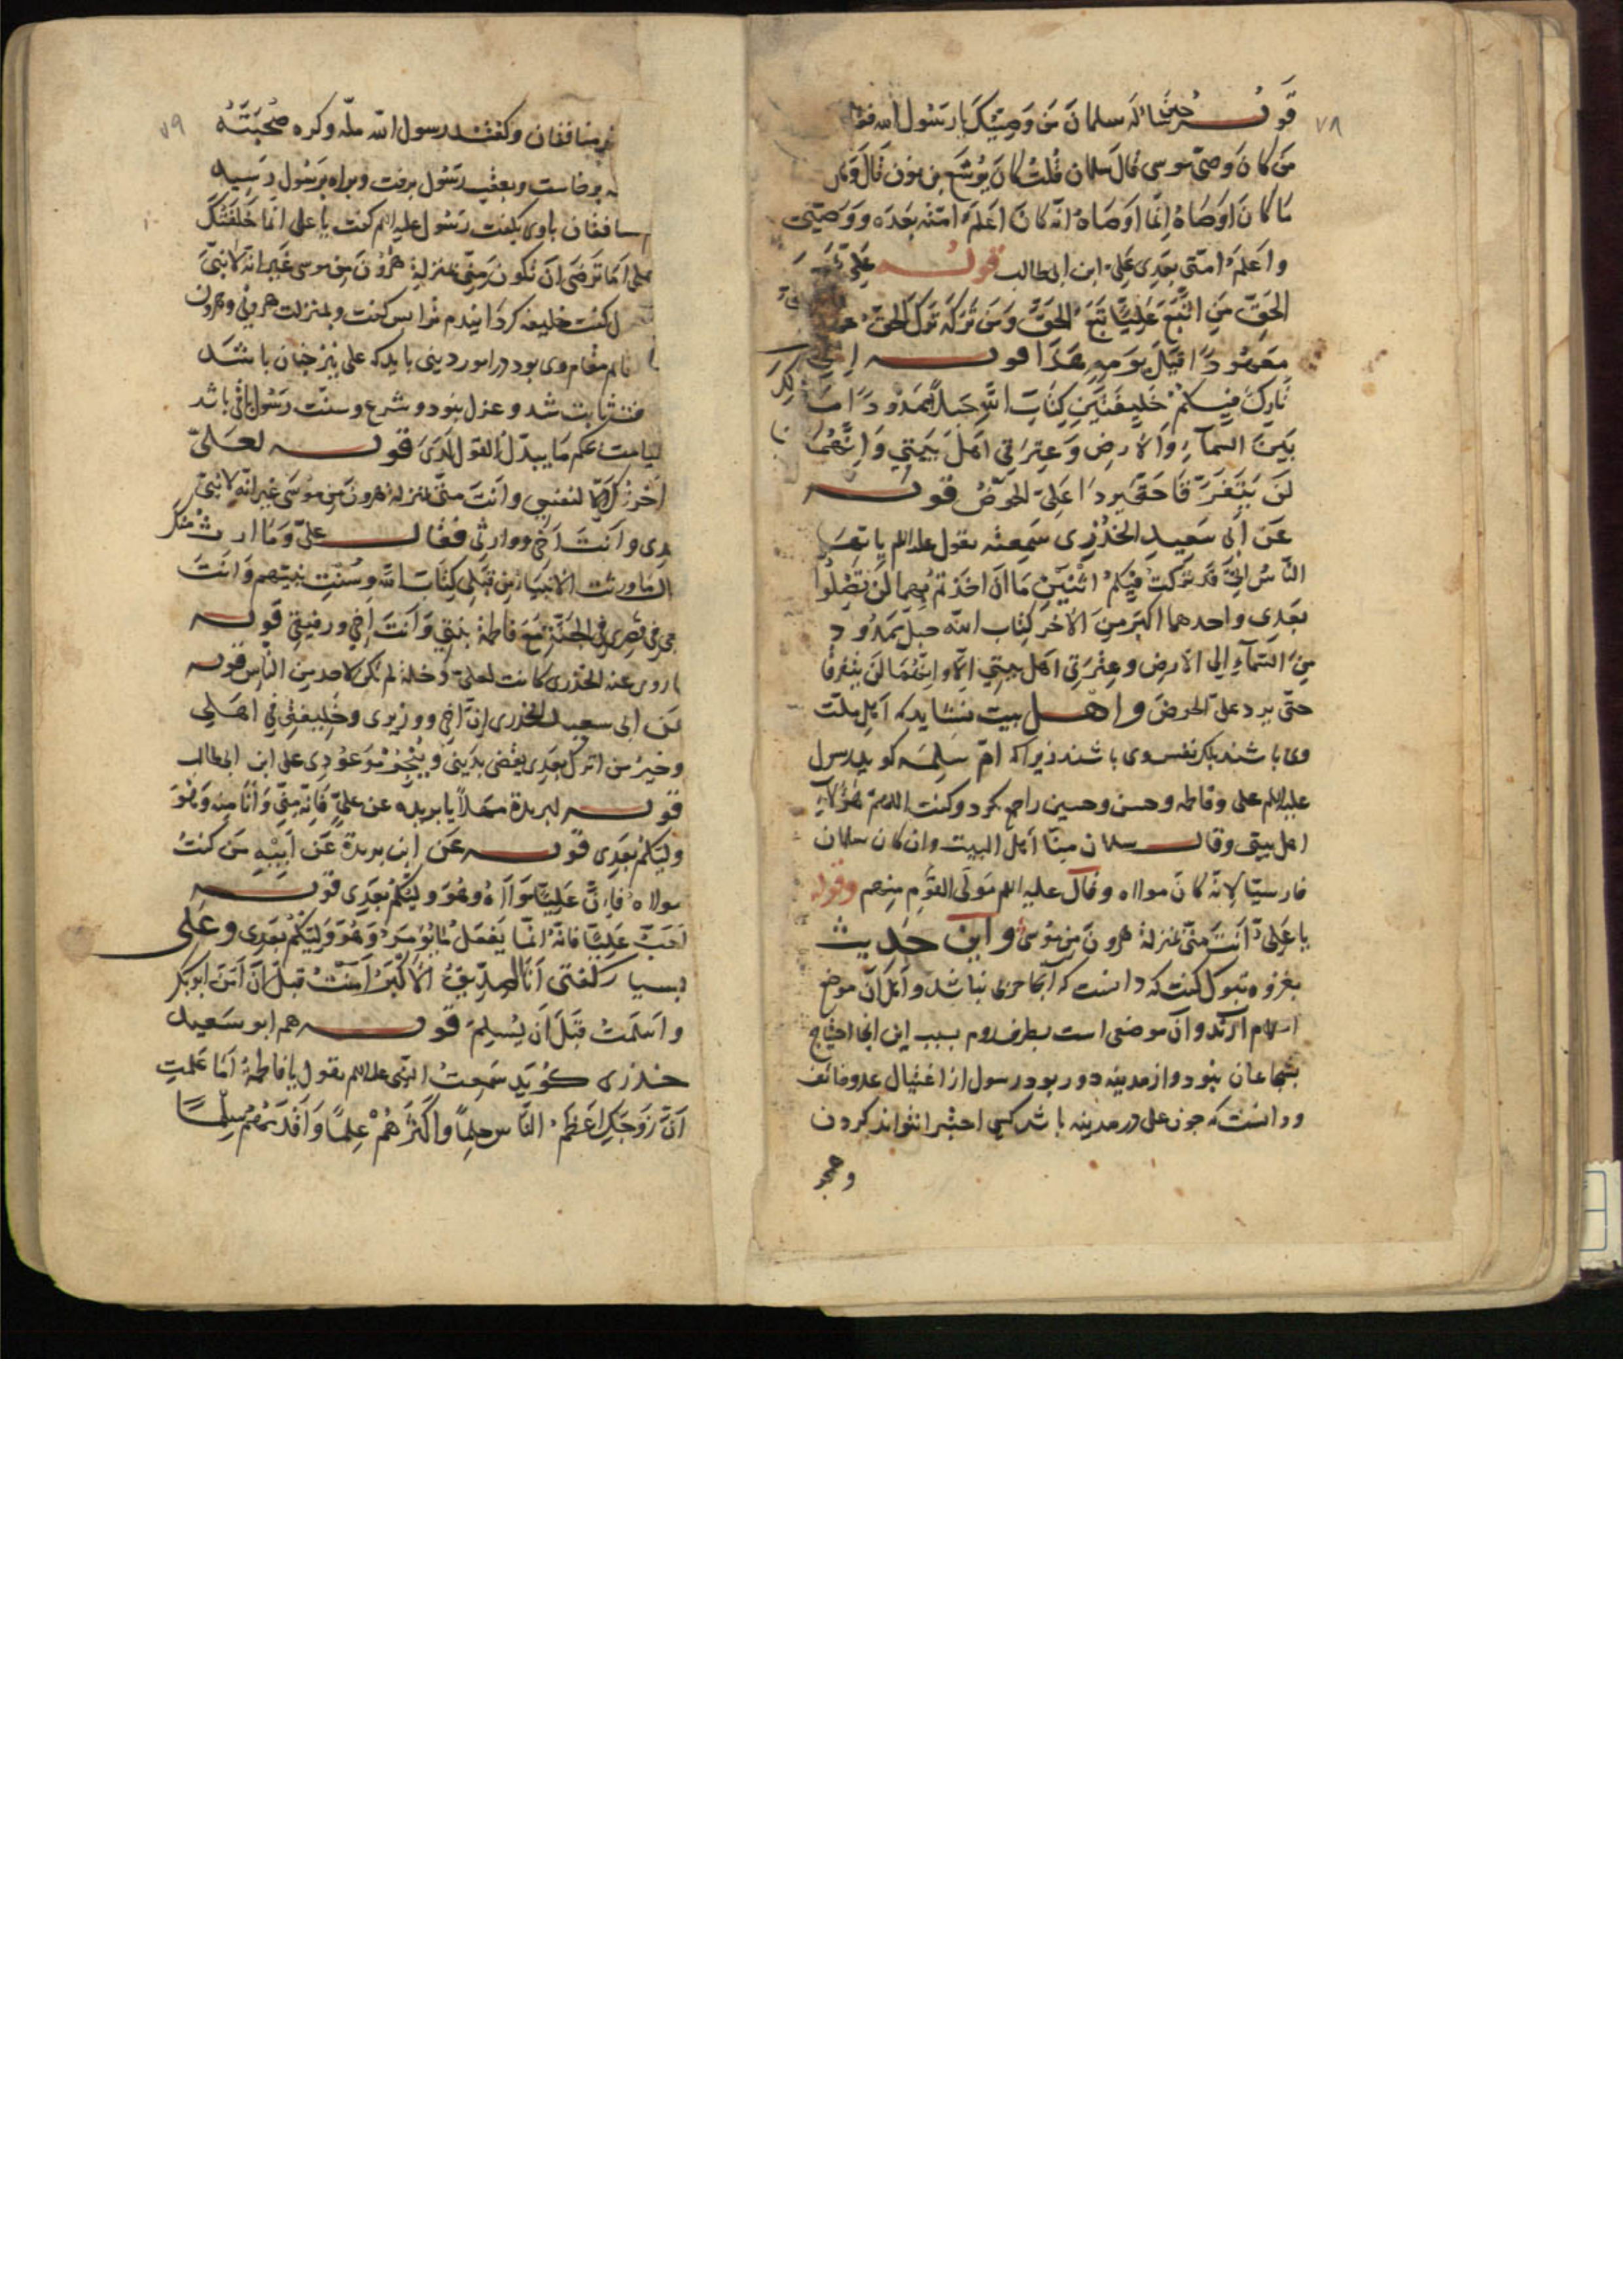 ٧٨
قوله حين سأله سلمان من وصيتك يا رسول الله فقال
من كان وصی موسی قال سلمان قلت كان يوشع بن نون قال
ما كان اوصاه انما اوصاه انه كان اعلم امته بعده ووصيتی
واعلم امتی بعدی علی ابن ابی طالب قوله علی
الحق من اتبع عليا تبع الحق ومن تركه ترك الحق
معهودا قبل يومه هذا قوله انی
تارك فيكم خليفتين كتاب الله حبل ممدود ما
بين السماء والارض وعترتی اهل بيتی وانهما
لن يتفرقا حتی يردا علی الحوض قوله
عن ابی سعيد الخدری سمعته يقول عليه السلم يا ايها
الناس انی قد تركت فيكم اثنين ما ان اخذتم بهما لن تضلوا
بعدی واحدهما اكبر من الاخر كتاب الله حبل ممدود
من السماء الی الارض وعترتی اهل بيتی الا وانهما لن يتفرقا
حتی يردا علی الحوض واهل بيت نشايد كه اهل ملت
وی باشند بلكه نفس وی باشند زيرا كه ام سلمه كويد رسول
عليه السلم علی وفاطمه وحسن وحسين را جمع كرد وكفت اللهم هؤلاء
اهل بيتی وقال سلمان منا اهل البيت وان كان سلمان
فارسيا لانه كان مولاه وقال عليه السلم مولی القوم منهم وقوله
يا علی انت منی بمنزلة هرون من موسی واين حديث
بغزوه تبوك كفت كه دانست كه آنجا حربی نباشد واهل آن موضع
اسلام آرند وآن موضعی است بطرف روم بسبب اين آنجا احتياج
بشجاعان نبود واز مدينه دور بود رسول از اغتيال عدو خائف
ودانست كه چون علی در مدينه باشد كسی احتيال نتواند كردن
٧٩
منافقان وكفتند رسول الله مله وكره صحبته
برخاست وبعقب رسول برفت وبراه برسول رسيد
منافقان باوی بكفت رسول عليه السلم كفت يا علی انما خلفتك
علی اما ترضی ان تكون منی بمنزلة هرون من موسی غير انه لا نبی
كفت خليفه كردانيدم ترا پس كفت وبمنزلت هرونی وهرون
قائم مقام وی بود در امور دينی بايد كه علی نيز چنان باشد
ثابت شد وعزل نبود وشرع وسنت رسول باقی باشد
قيامت بحكم ما يبدل القول لدی قوله لعلی
اخرتك لنفسی وانت منی بمنزلة هرون من موسی غير انه لا نبی
بعدی وانت اخی ووارثی فقال علی وما ارث منك
قال ما ورثت الانبياء من قبلی كتاب الله وسنت نبيهم وانت
معی فی قصری فی الجنة مع فاطمة بنتی وانت اخی ورفيقی قوله
ما روی عنه الخدری كانت لعلی دخلة لم تكن لاحد من الناس قوله
عن ابی سعيد الخدری ان اخی ووزيری وخليفتی فی اهلی
وخير من اترك بعدی يقضی بدينی وينجز موعودی علی ابن ابی طالب
قوله لبريدة مهلا يا بريده عن علی فانه منی وانا منه وهو
وليكم بعدی قوله عن ابن بريدة عن ابيه من كنت
مولاه فان عليا مولاه وهو وليكم بعدی قوله
احب عليا فانه انما يفعل ما يؤمر وهو وليكم بعدی وعلی
بسيار كفتی انا الصديق الاكبر آمنت قبل ان آمن ابو بكر
واسلمت قبل ان يسلم قوله هم ابو سعيد
خدری كويد سمعت النبی عليه السلم يقول يا فاطمة اما علمت
ان زوجك اعظم الناس حلما واكثرهم علما واقدمهم سلما